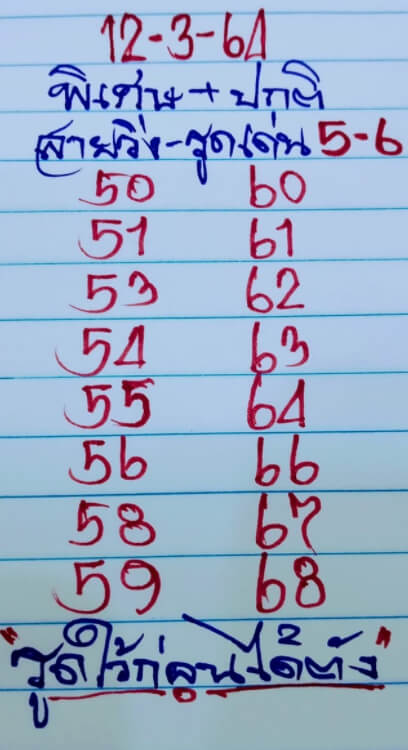 12-3-64
พิเศษ+ปกติ
สายวิ่ง-รูดเด่น 5-6
50 60
51 61
53 62
54 63
55 64
56 66
58 67
59 68
"รูดไว้ก่อนได้ตัง"